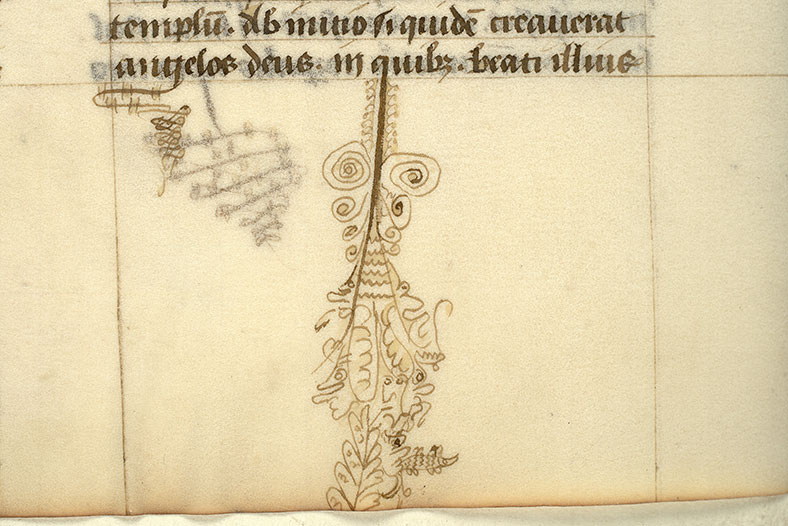 templū. Ab initio siquidē creauerat
angelos deus. in quibꝫ. beati illius